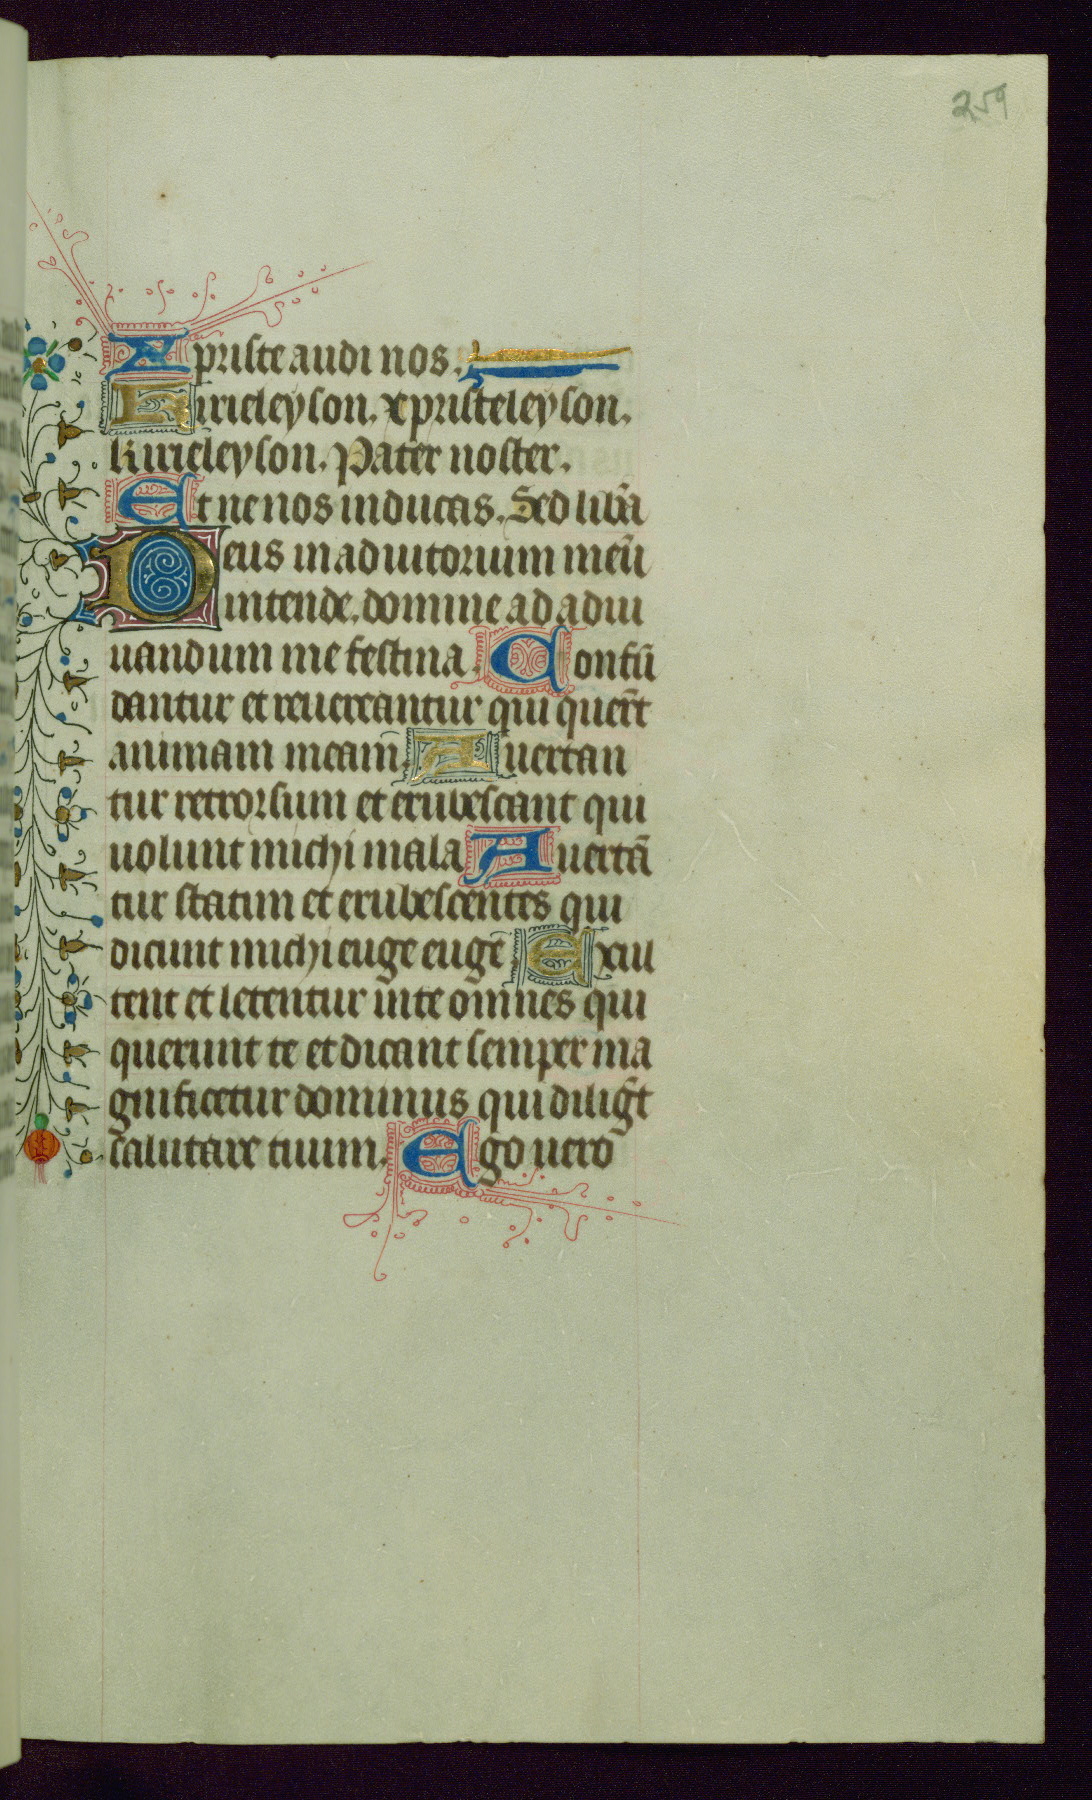 259
Xpriste audi nos.
Kirieleyson. xpristeleyson.
kirieleyson. Pater noster.
Et ne nos inducas. Sed lib̃a
Deus in adiutorium meũ
intende. domine ad adiu
uandum me festina. Confũ
dantur et reuereantur qui quer̃t
animam meam̃. Auertan
tur retrorsum et erubescant qui
uolunt michi mala Auertã
tur statim et erubescentes qui
dicunt michi euge euge. Exul
tent et letentur in te omnes qui
querunt te et dicant semper ma
gnificetur dominus qui dilig̃t
salutare tuum. Ego uero